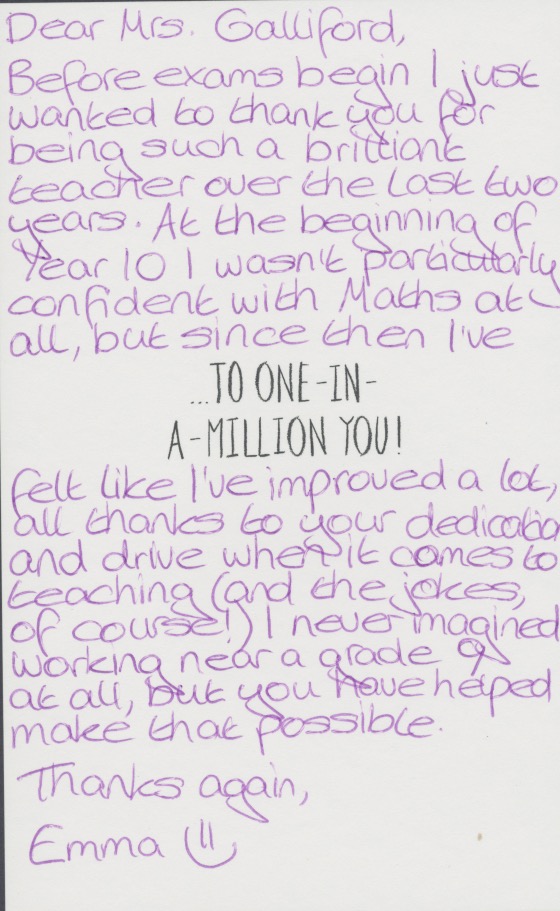 Dear Mrs. Galliford,
Before exams begin I just
wanted to thank you for
being such a brilliant
teacher over the last two
years. At the beginning of
Year 10 I wasn't particularly
confident with Maths at
all, but since then I've
...TO ONE-IN-
A-MILLION YOU!
felt like I've improved a lot,
all thanks to your dedicatio
and drive when it comes to
teaching (and the jokes,
of course!) I never imagined
working near a grade 9
at all, but you have helped
make that possible.
Thanks again,
Emma